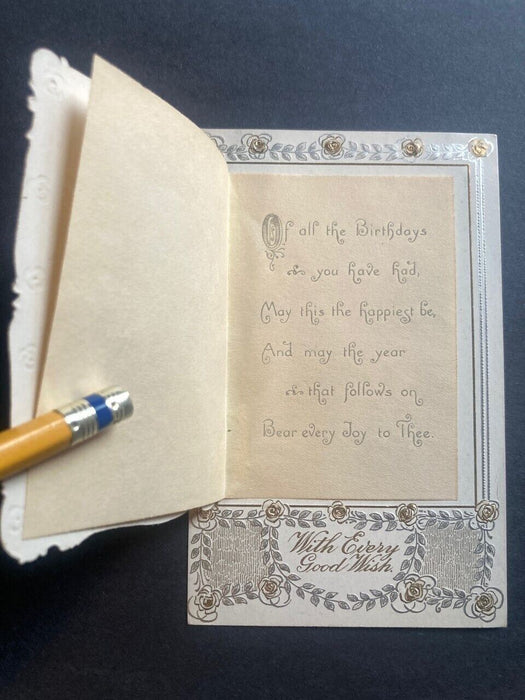 Of all the Birthdays
you have had,
May this the happiest be,
And may the year
that follows on
Bear every Joy to Thee.
With Every
Good Wish.